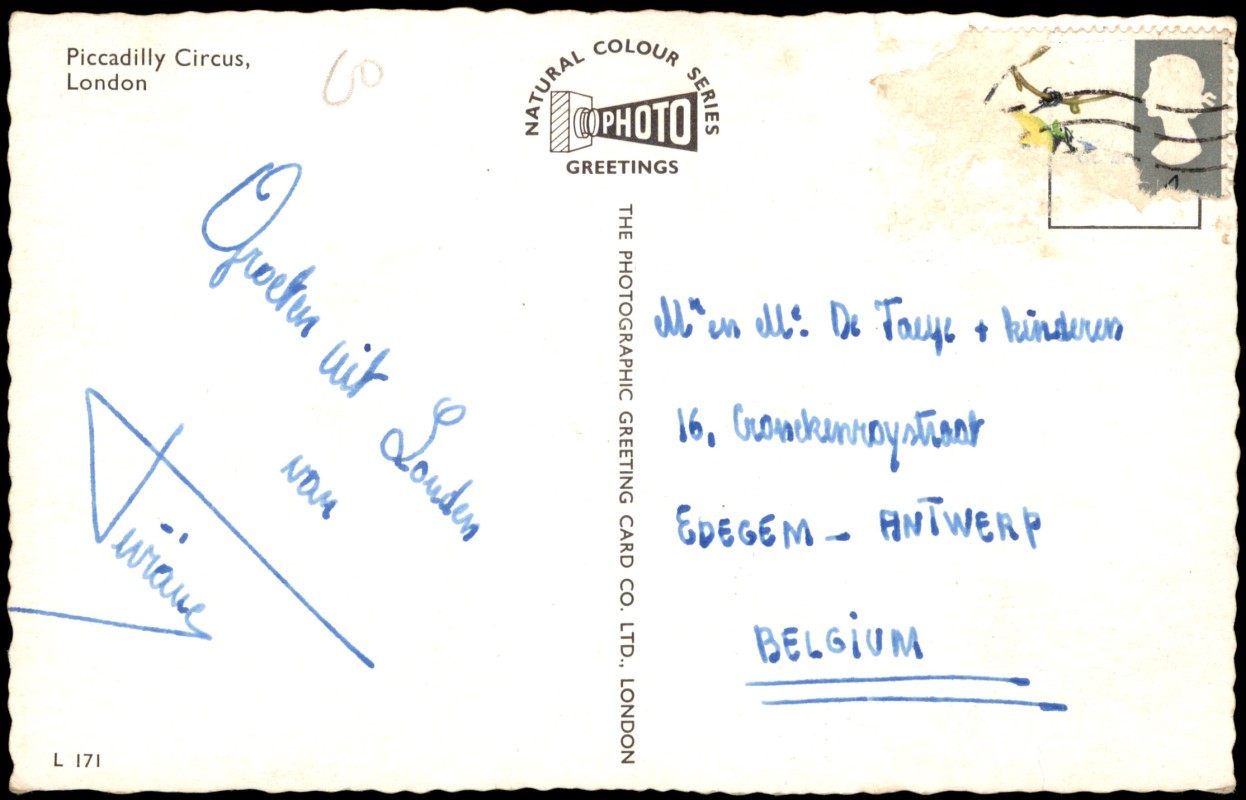 Piccadilly Circus,
London
60
NATURAL COLOUR SERIES
PHOTO
GREETINGS
Groeten uit Londen
van
THE PHOTOGRAPHIC GREETING CARD CO. LTD., LONDON
Mr en Me. De Taeye + kinderen
16, Cranckenroystraat
EDEGEM - ANTWERP
BELGIUM
L 171